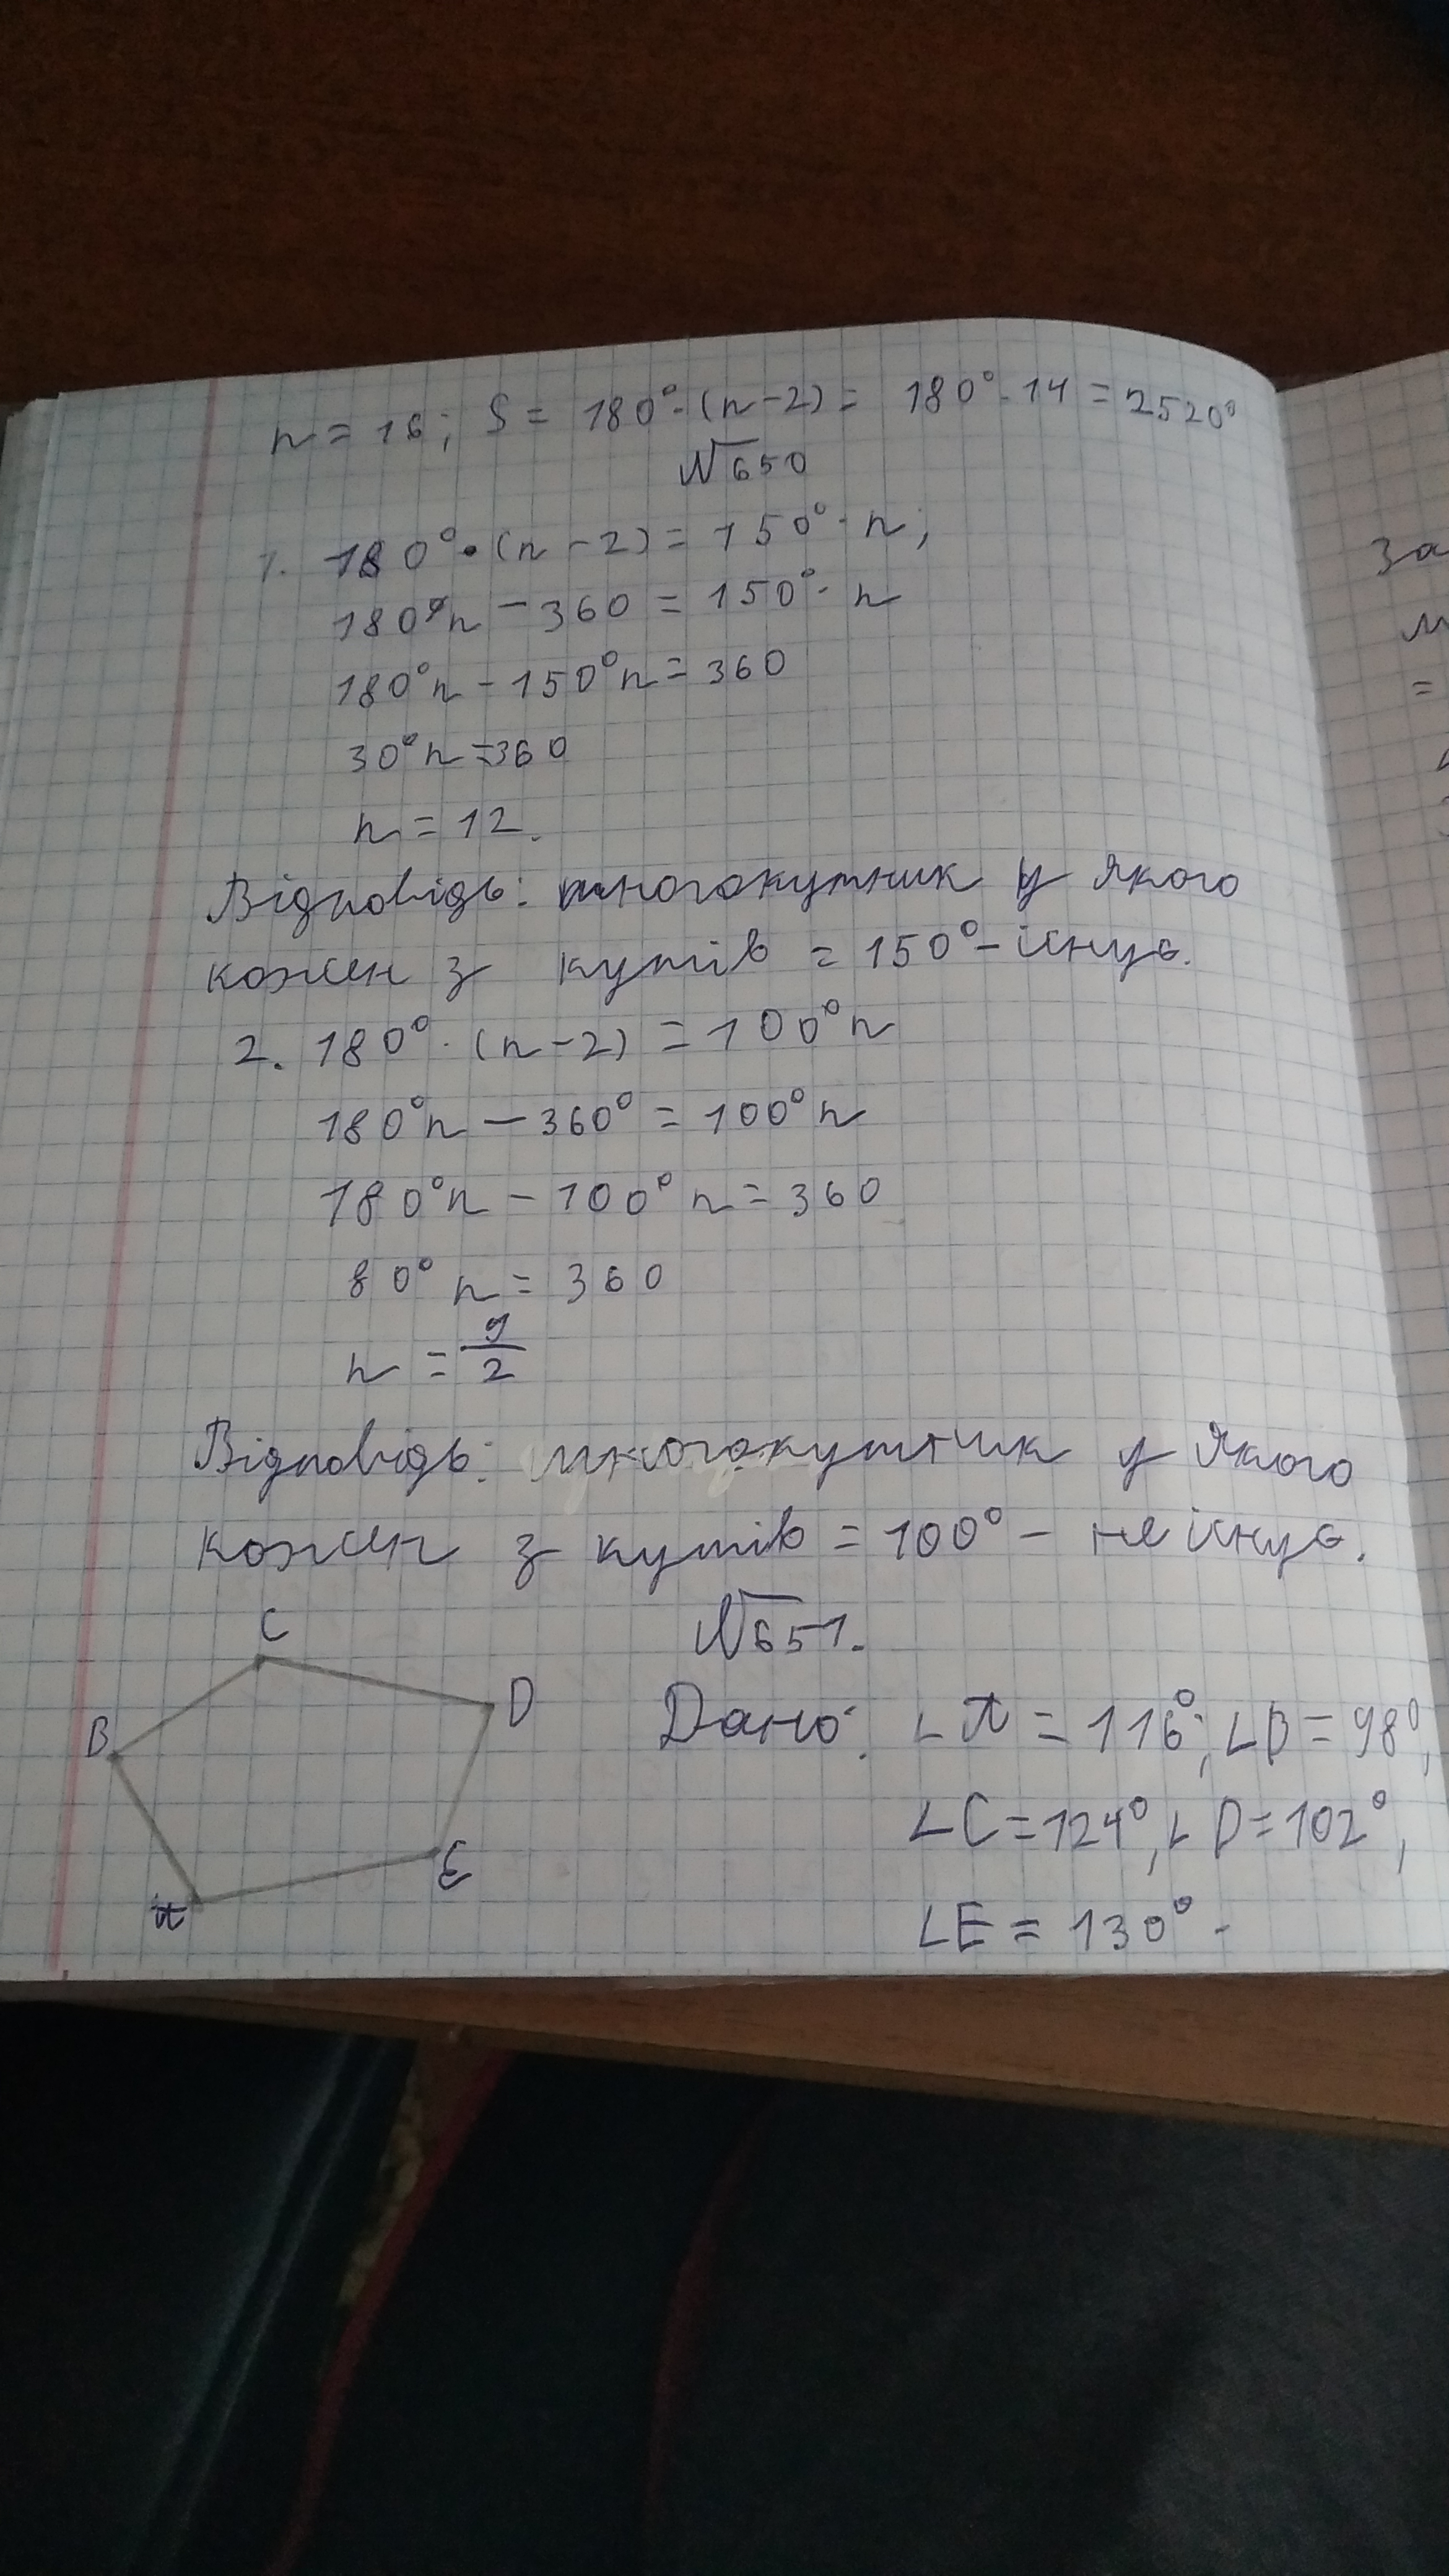 n = 16; S = 180° · (n-2) = 180° · 14 = 2520°
№650
1. 180° · (n-2) = 150° · n;
180°n - 360 = 150° · n
180°n - 150°n = 360
30°n = 360
n = 12.
Відповідь: многокутник у якого
кожен з кутів = 150° - існує.
2. 180° · (n-2) = 100°n
180°n - 360° = 100°n
180°n - 100°n = 360
80° n = 360
n = 9/2
Відповідь: многокутник у якого
кожен з кутів = 100° - не існує.
№651.
C
B
D
E
A
Дано: ∠A = 116°; ∠B = 98°,
∠C = 124°, ∠D = 102°,
∠E = 130°.
За
=